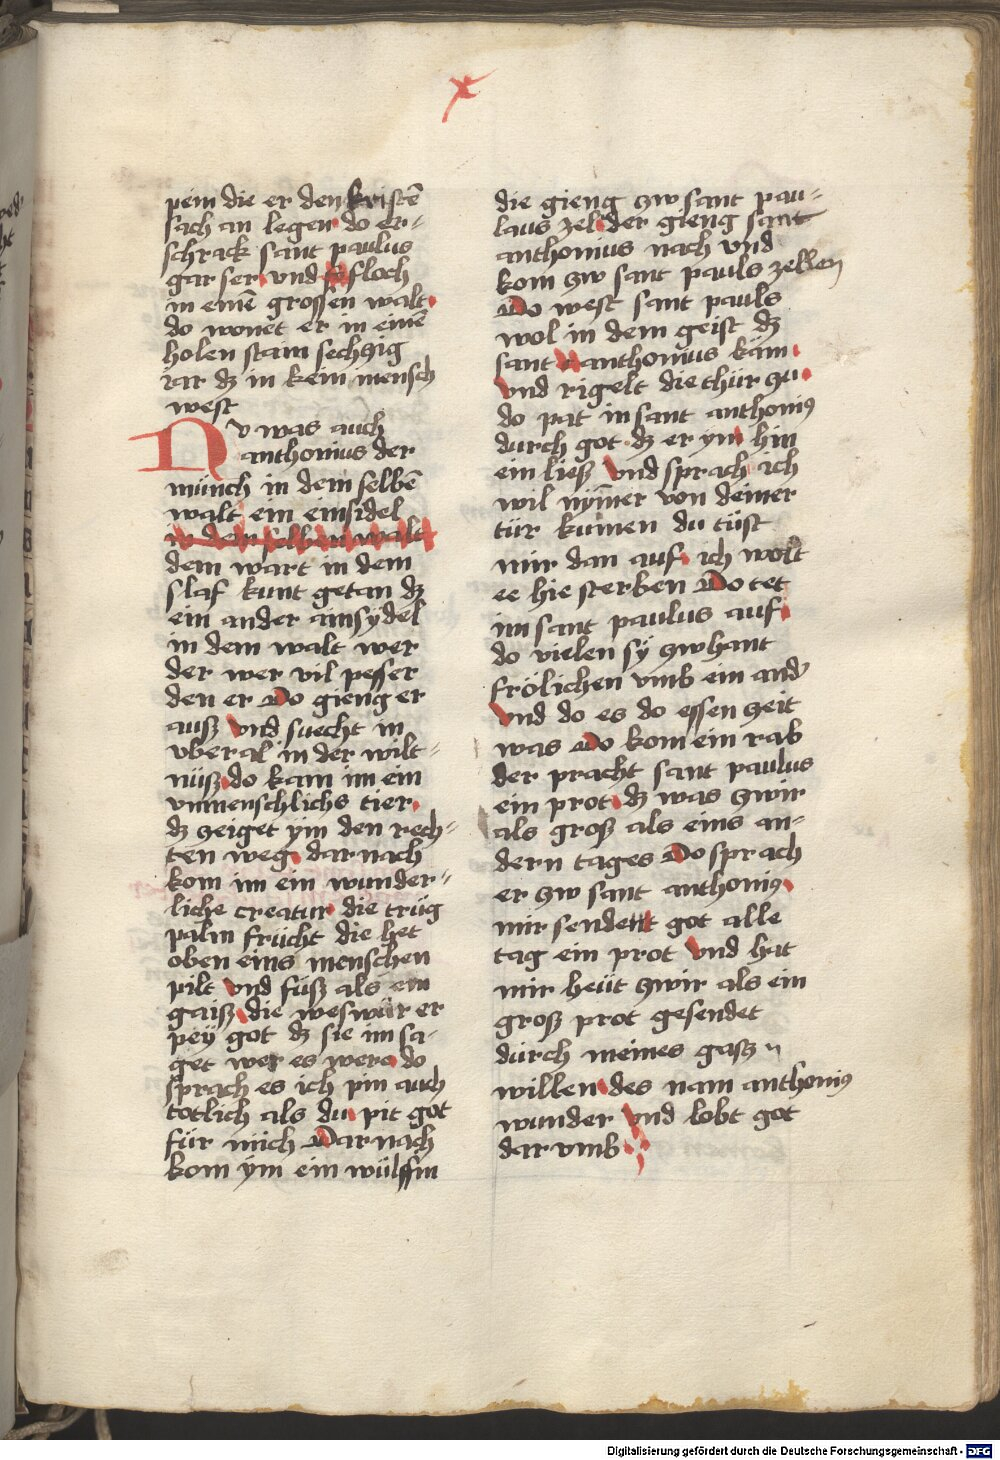 x
pein die er den kristē
sach an legen do er-
schrack sant paulus
gar ser vnd floch
in einē grossen walt
do wonet er in einē
holen stain sechczig
iar dz in kein mensch
west
Nv was auch
anthonius der
münch in dem selbē
walt ein einsidel
in dem selben walt
dem wart in dem
slaf kunt getan dz
ein ander ainsydel
in dem walt wer
der wer vil pesser
den er Do gieng er
ausz vnd suecht in
vberal in der wilt-
nüsz do kam im ein
vnmenschlichs tier
dz zeiget ym den rech-
ten weg dar nach
kom im ein wunder-
liche creatur die trüg
palm frücht die het
oben eins menschen
pilt vnd füsz als ein
gaisz die weswür er
pey got dz sie im sa-
get wer es were do
sprach es ich pin auch
totlich als du pit got
für mich Dar nach
kom ym ein wülffin
die gieng zw sant pau-
laus zel der gieng sant
anthonius nach vnd
kom zw sant pauls zellen
Do west sant pauls
wol in dem geist dz
sant anthonius käm
vnd rigelt die thür zu
do pat in sant anthoniꝰ
durch got dz er ym hin
ein liesz vnd sprach ich
wil nym̄er von deiner
tür kumen du tüst
mir dan auf ich wolt
ee hie sterben Do tet
im sant paulus auf
do vielen sy zwhant
frölichen vmb ein and
vnd do es do essen zeit
was Do kom ein rab
der pracht sant paulus
ein prot dz was zwir
als grosz als eins an-
dern tages Do sprach
er zw sant anthoniꝰ
mir sendet got alle
tag ein prot vnd hat
mir heüt zwir als ein
grosz prot gesendet
durch meines gasz
willen des nam anthoniꝰ
wunder vnd lobt got
dar vmb
Digitalisierung gefördert durch die Deutsche Forschungsgemeinschaft - DFG